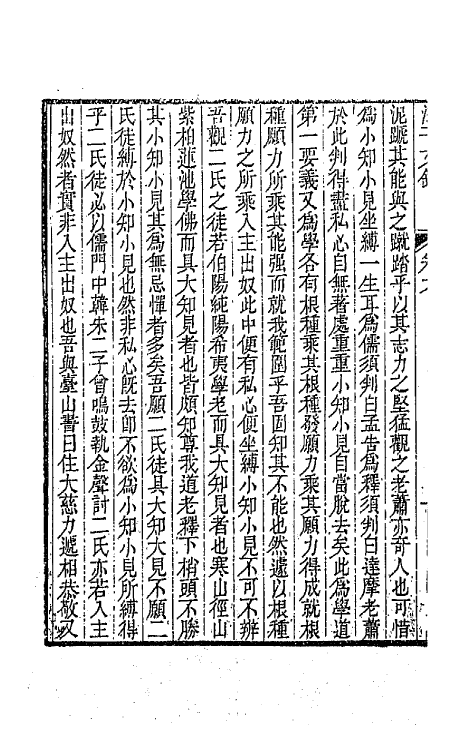 泥蹏其能與之蹴踏乎以其志力之堅猛觀之老蕭亦奇人也可惜
爲小知小見坐縛一生耳爲儒須判白孟告爲釋須判白達摩老蕭
於此判得盡私心自無著處重重小知小見自當脫去矣此爲學道
第一要義又爲學各有根種乘其根種發願力乘其願力得成就根
種願力所乘其能强而就我範圍乎吾固知其不能也然遽以根種
願力之所乘入主出奴此中便有私心便坐縛小知小見不可不辨
吾觀二氏之徒若伯陽純陽希夷學老而具大知見者也寒山徑山
紫柏蓮池學佛而具大知見者也皆頗知尊我道老釋下梢頭不勝
其小知小見其爲無忌憚者多矣吾願二氏徒具大知大見不願二
氏徒縛於小知小見也然非私心旣去卽不欲爲小知小見所縛得
乎二氏徒必以儒門中韓朱二子曾鳴鼓執金聲討二氏亦若入主
出奴然者實非入主出奴也吾與臺山書曰住大慈力遞相恭敬又